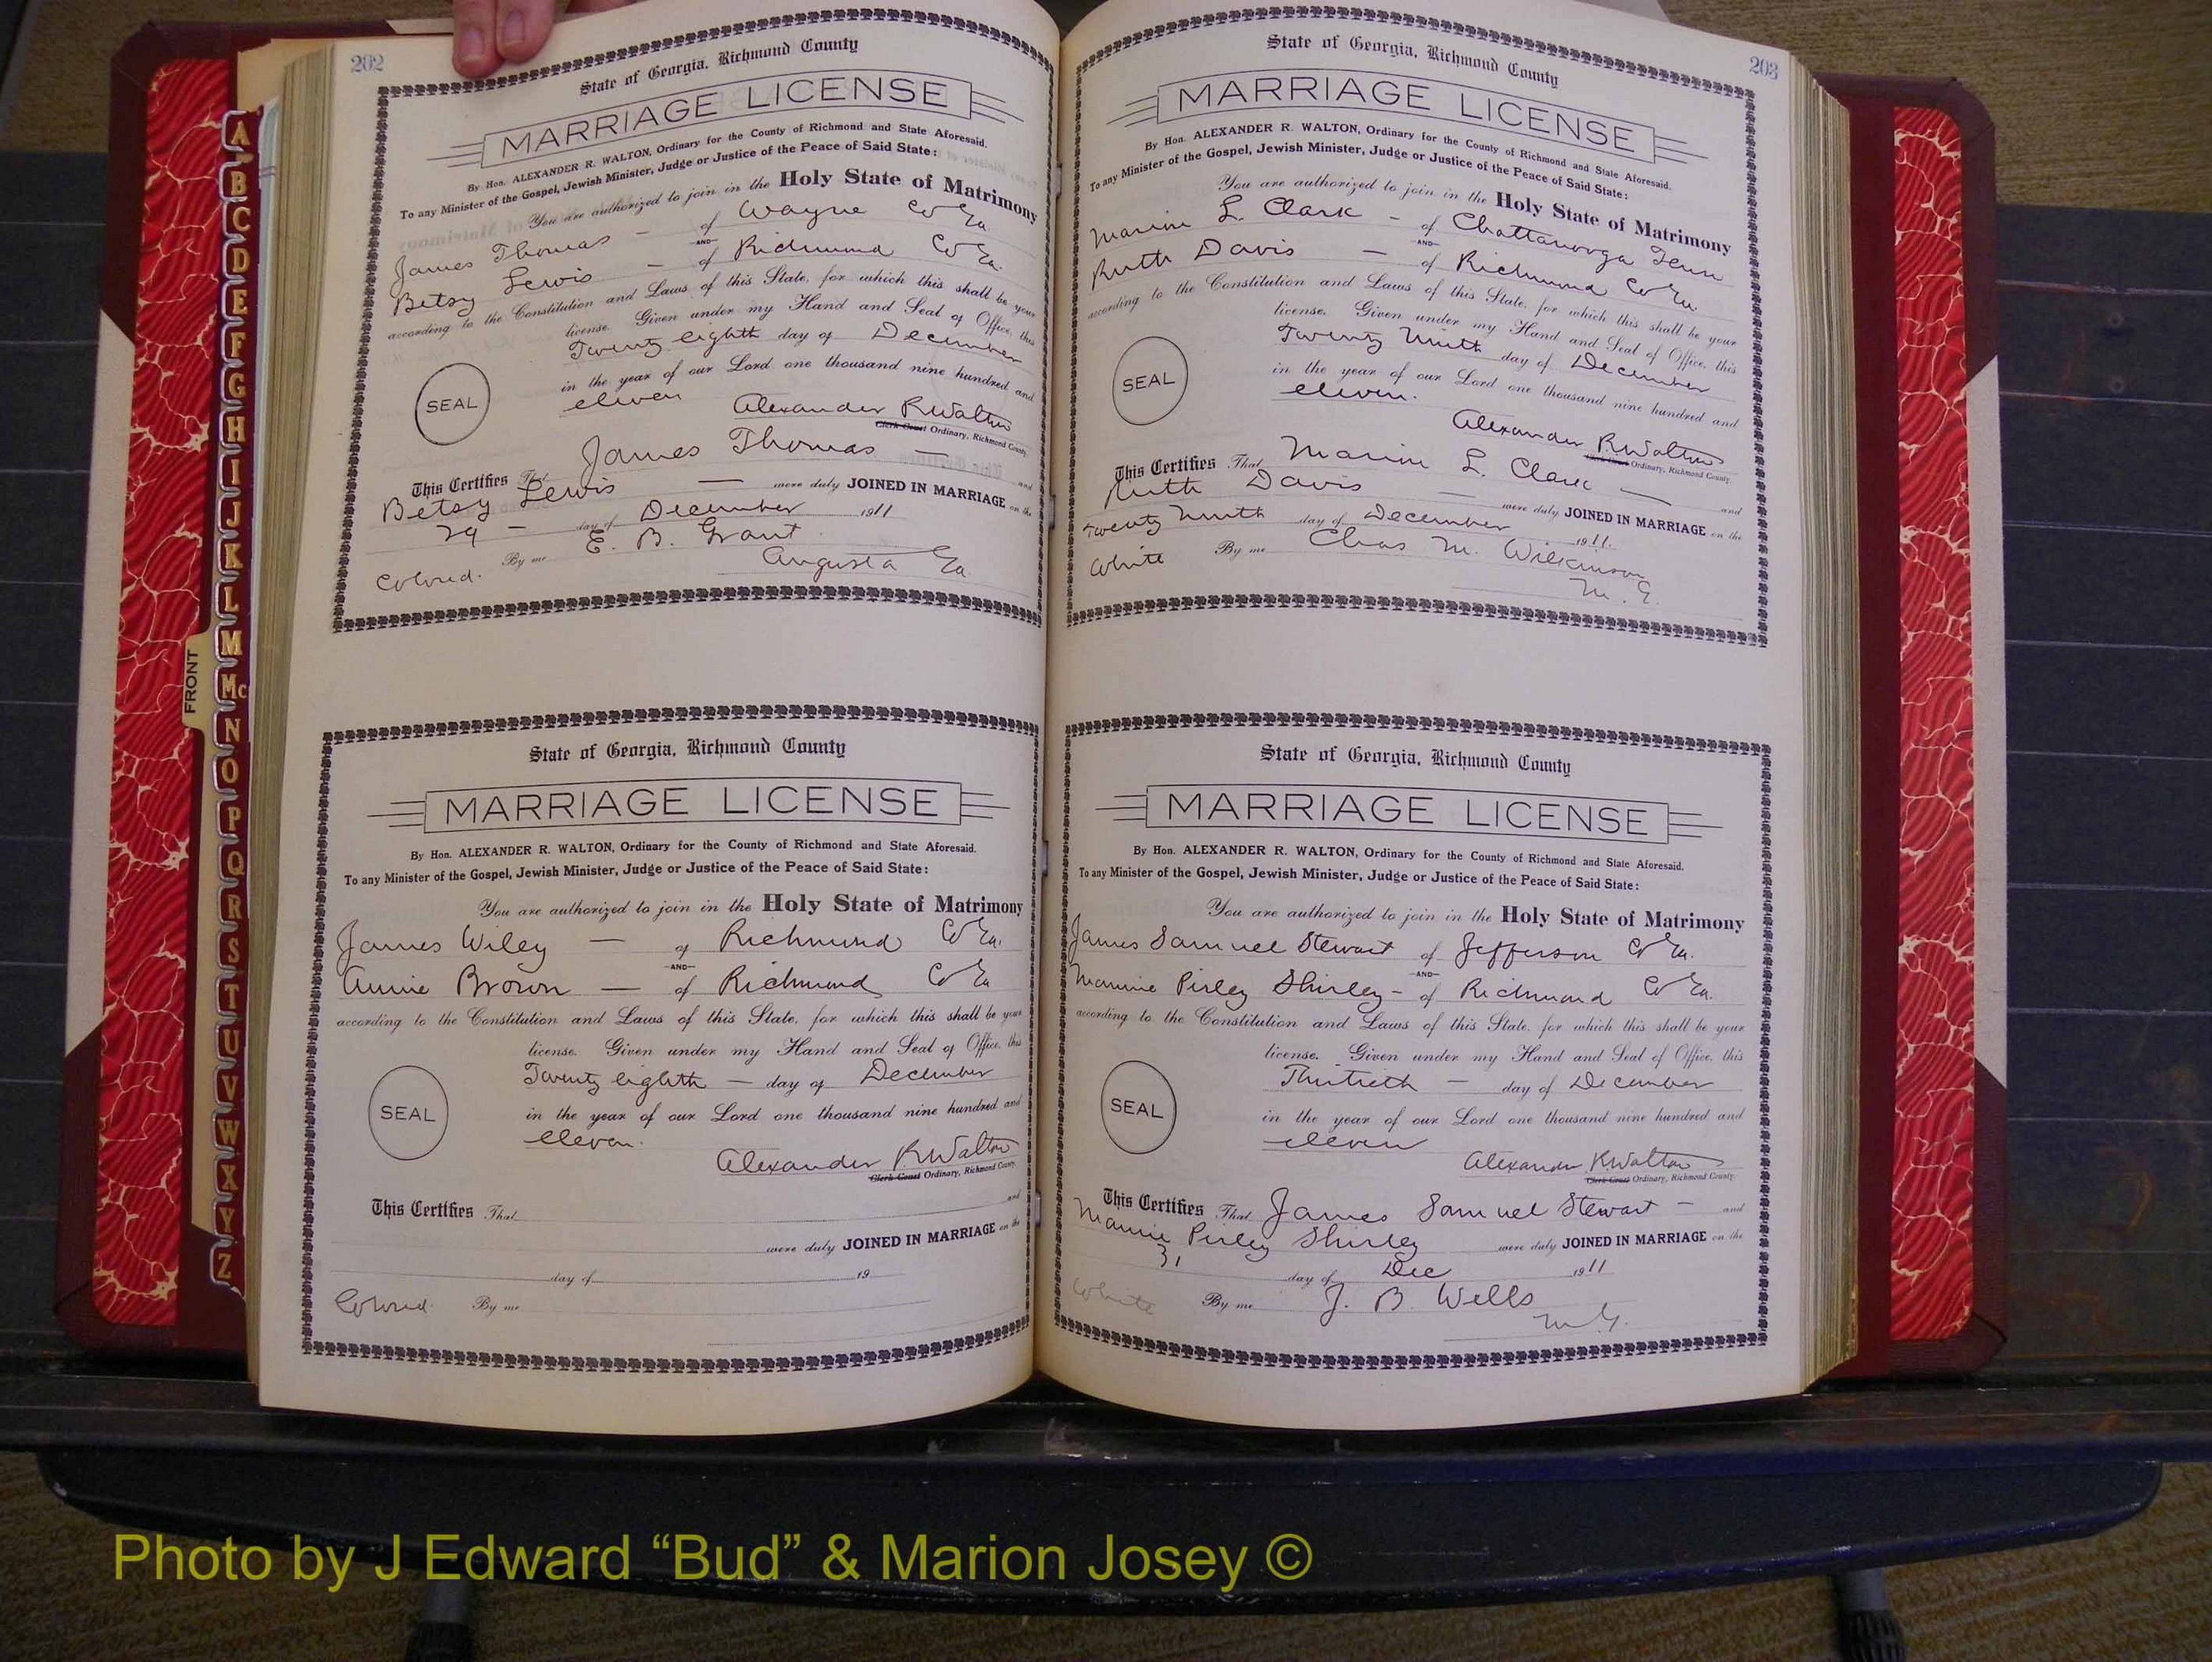 202
State of Georgia, Richmond County
MARRIAGE LICENSE
By Hon. ALEXANDER R. WALTON, Ordinary for the County of Richmond and State Aforesaid.
To any Minister of the Gospel, Jewish Minister, Judge or Justice of the Peace of Said State:
You are authorized to join in the Holy State of Matrimony
James Thomas — of Wayne Co Ga.
AND
Betsy Lewis — of Richmond Co Ga.
according to the Constitution and Laws of this State, for which this shall be your
license. Given under my Hand and Seal of Office, this
Twenty eighth day of December
in the year of our Lord one thousand nine hundred and
SEAL
eleven
Alexander R Walton
Clerk Court Ordinary, Richmond County
This Certifies That James Thomas — and
Betsy Lewis — were duly JOINED IN MARRIAGE on the
29 — day of December 1911
By me E. B. Grant
Colored. Augusta Ga.
State of Georgia, Richmond County
MARRIAGE LICENSE
By Hon. ALEXANDER R. WALTON, Ordinary for the County of Richmond and State Aforesaid.
To any Minister of the Gospel, Jewish Minister, Judge or Justice of the Peace of Said State:
You are authorized to join in the Holy State of Matrimony
James Wiley — of Richmond Co Ga.
AND
Annie Brown — of Richmond Co Ga
according to the Constitution and Laws of this State, for which this shall be your
license. Given under my Hand and Seal of Office, this
Twenty eighth — day of December
SEAL
in the year of our Lord one thousand nine hundred and
eleven.
Alexander R Walton
Clerk Court Ordinary, Richmond County.
This Certifies That and
were duly JOINED IN MARRIAGE on the
day of 19
Colored. By me
203
State of Georgia, Richmond County
MARRIAGE LICENSE
By Hon. ALEXANDER R. WALTON, Ordinary for the County of Richmond and State Aforesaid.
To any Minister of the Gospel, Jewish Minister, Judge or Justice of the Peace of Said State:
You are authorized to join in the Holy State of Matrimony
Marion L. Clark — of Chattanooga Tenn
AND
Ruth Davis — of Richmond Co Ga.
according to the Constitution and Laws of this State, for which this shall be your
license. Given under my Hand and Seal of Office, this
Twenty Ninth day of December
SEAL
in the year of our Lord one thousand nine hundred and
eleven.
Alexander R. Walton
Clerk Court Ordinary, Richmond County.
This Certifies That Marion L. Clark — and
Ruth Davis — were duly JOINED IN MARRIAGE on the
Twenty Ninth day of December 1911.
White By me Chas M. Wilkinson
M. G.
State of Georgia, Richmond County
MARRIAGE LICENSE
By Hon. ALEXANDER R. WALTON, Ordinary for the County of Richmond and State Aforesaid.
To any Minister of the Gospel, Jewish Minister, Judge or Justice of the Peace of Said State:
You are authorized to join in the Holy State of Matrimony
James Samuel Stewart of Jefferson Co Ga.
AND
Mamie Pirley Shirley — of Richmond Co Ga.
according to the Constitution and Laws of this State, for which this shall be your
license. Given under my Hand and Seal of Office, this
Thirtieth — day of December
SEAL
in the year of our Lord one thousand nine hundred and
eleven
Alexander R Walton
Clerk Court Ordinary, Richmond County.
This Certifies That James Samuel Stewart — and
Mamie Pirley Shirley were duly JOINED IN MARRIAGE on the
31 day of Dec 1911
White By me J. B. Wells
M. G.
FRONT
A
B
C
D
E
F
G
H
I
J
K
L
M
Mc
N
O
P
Q
R
S
T
U
V
W
X
Y
Z
Photo by J Edward “Bud” & Marion Josey ©